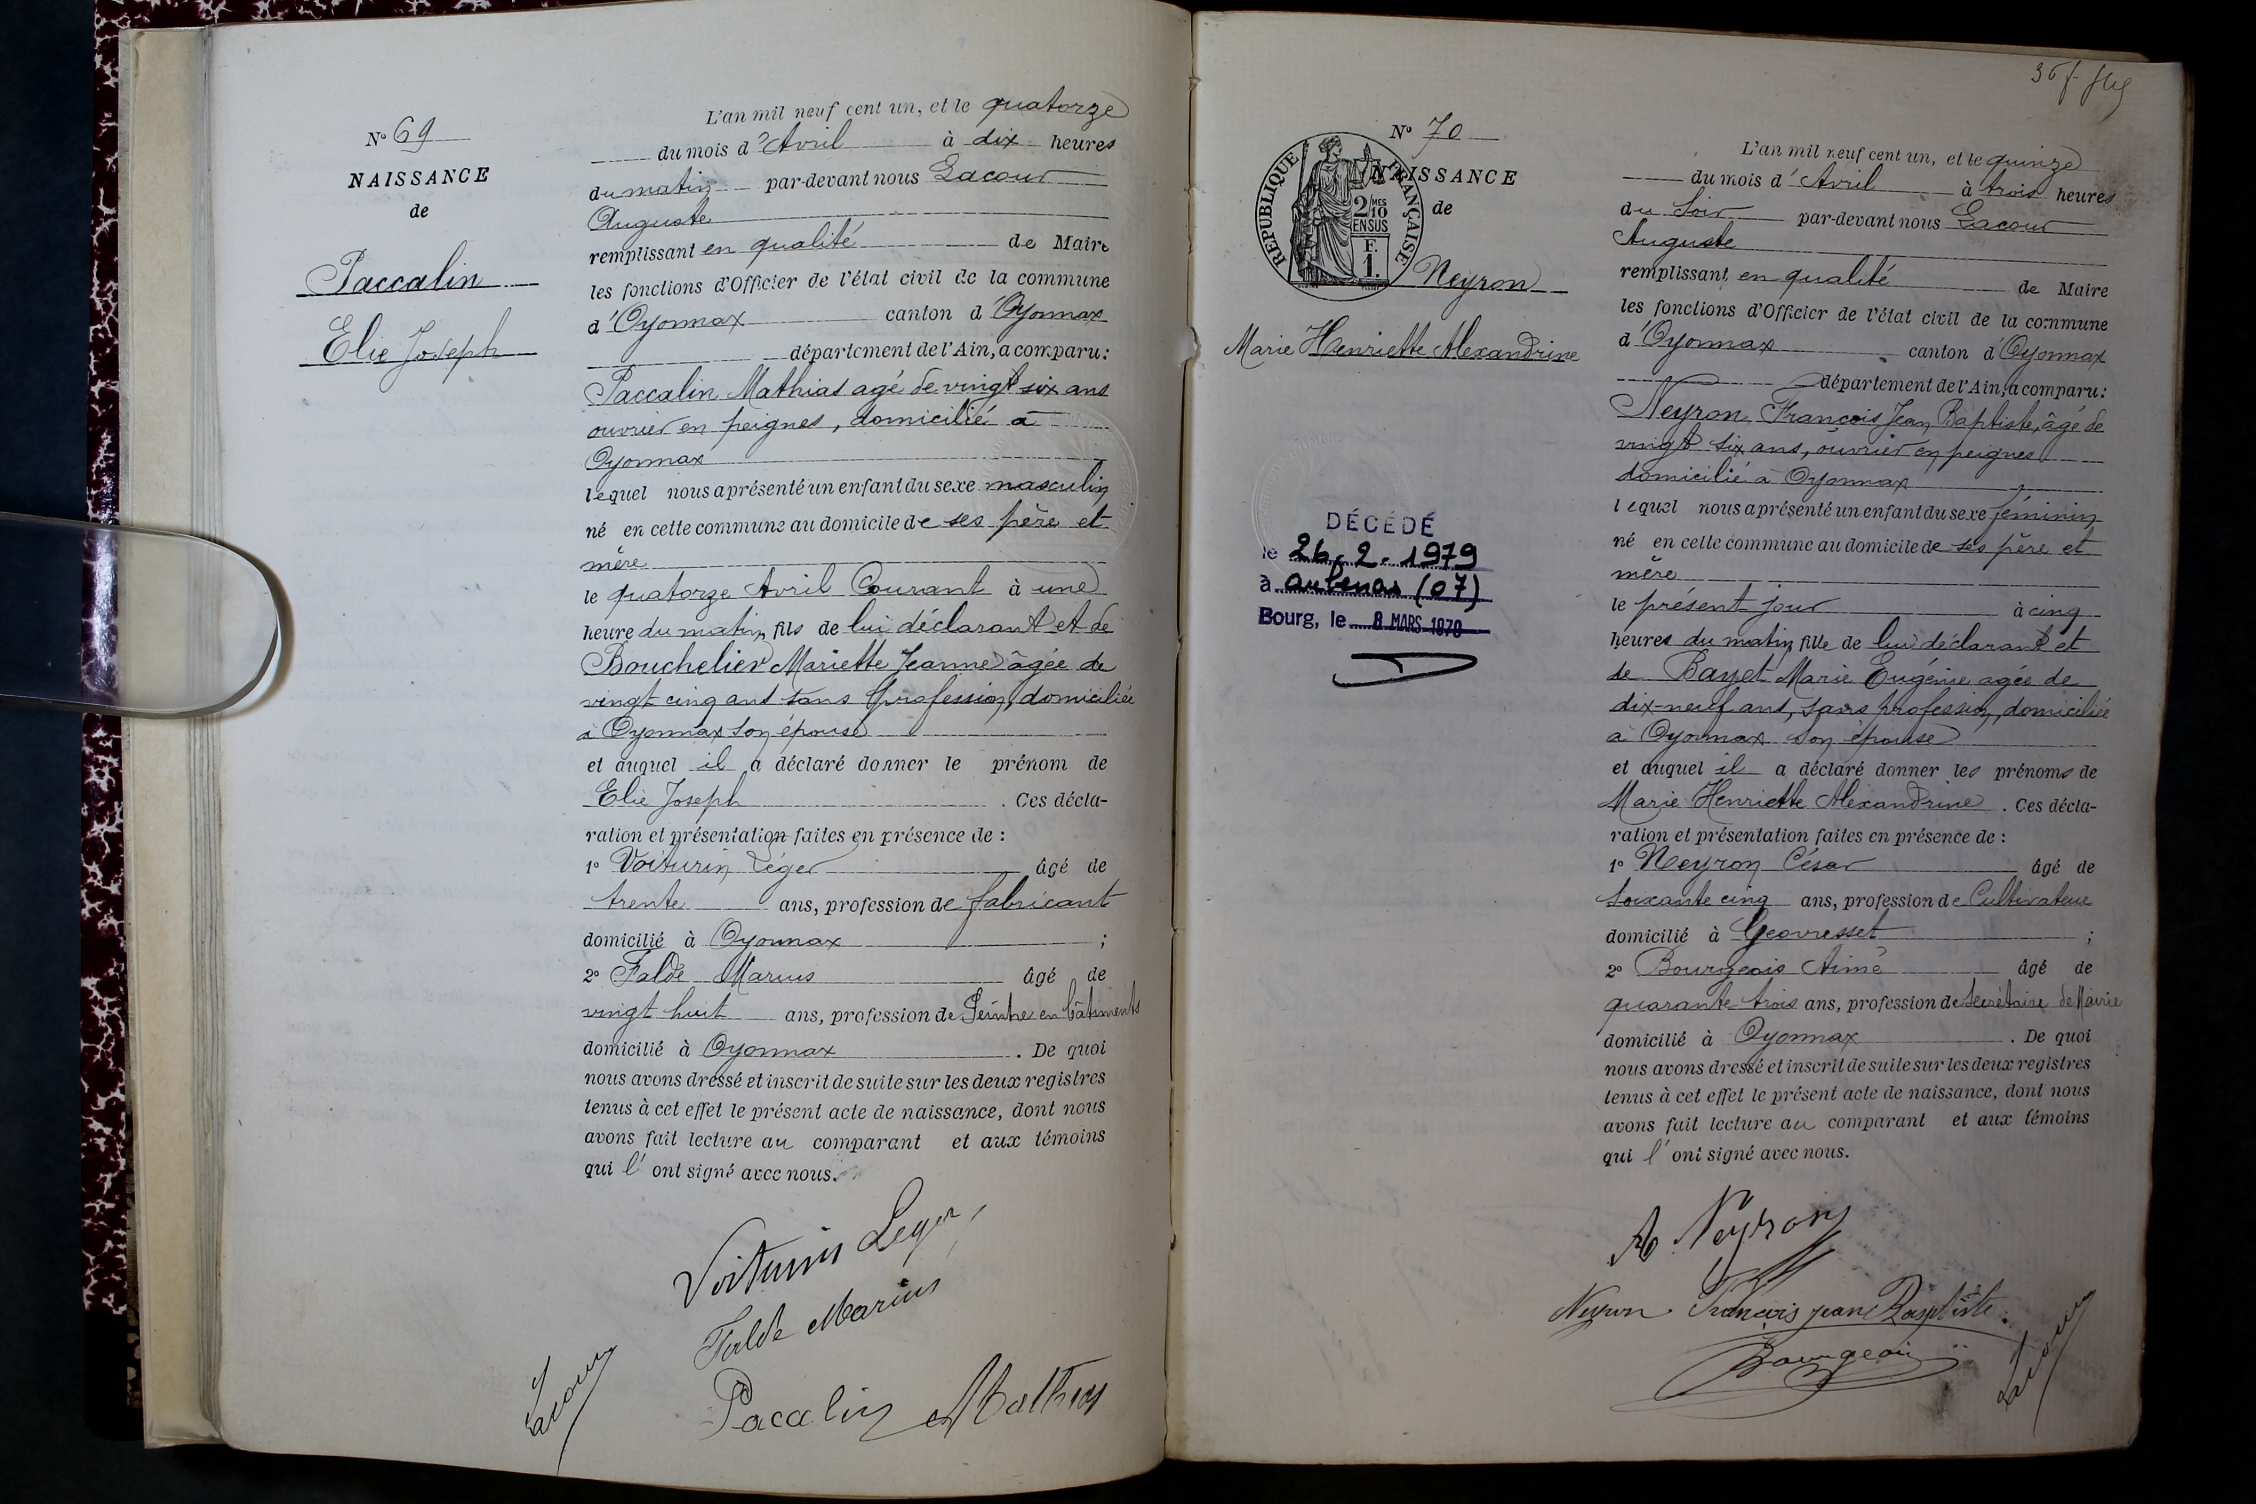 N° 69
NAISSANCE
de
Paccalin
Elie Joseph
L'an mil neuf cent un, et le quatorze
du mois d'Avril à dix heures
du matin par-devant nous Lacour
Auguste
remplissant en qualité de Maire
les fonctions d'Officier de l'état civil de la commune
d'Oyonnax canton d'Oyonnax
département de l'Ain, a comparu :
Paccalin Mathias agé de vingt six ans
ouvrier en peignes, domicilié à
Oyonnax
lequel nous a présenté un enfant du sexe masculin
né en cette commune au domicile de ses père et
mère
le quatorze Avril Courant à une
heure du matin, fils de lui déclarant et de
Bouchelier Mariette Jeanne âgée de
vingt cinq ans sans profession, domiciliée
à Oyonnax son épouse
et auquel il a déclaré donner le prénom de
Elie Joseph . Ces décla-
ration et présentation faites en présence de :
1° Voiturin Léger âgé de
trente ans, profession de fabricant
domicilié à Oyonnax ;
2° Falde Marius âgé de
vingt huit ans, profession de Peintre en bâtiments
domicilié à Oyonnax . De quoi
nous avons dressé et inscrit de suite sur les deux registres
tenus à cet effet le présent acte de naissance, dont nous
avons fait lecture au comparant et aux témoins
qui l'ont signé avec nous.
Voiturin Léger
Falde Marius
Lacour
Pacalin Mathias
N° 70
NAISSANCE
de
RÉPUBLIQUE FRANÇAISE
2 MES
10
EN SUS
F.
1.
Neyron
Marie Henriette Alexandrine
DÉCÉDÉ
le 26.2.1979
à aubenas (07)
Bourg, le 8 MARS 1979
L'an mil neuf cent un, et le quinze
du mois d'Avril à trois heures
du soir par-devant nous Lacour
Auguste
remplissant en qualité de Maire
les fonctions d'Officier de l'état civil de la commune
d'Oyonnax canton d'Oyonnax
département de l'Ain, a comparu :
Neyron François Jean Baptiste, âgé de
vingt six ans, ouvrier en peignes
domicilié à Oyonnax
lequel nous a présenté un enfant du sexe féminin
né en cette commune au domicile de ses père et
mère
le présent jour à cinq
heures du matin fille de lui déclarant et
de Bayet Marie Eugénie agée de
dix-neuf ans, sans profession, domiciliée
à Oyonnax son épouse
et auquel il a déclaré donner les prénoms de
Marie Henriette Alexandrine . Ces décla-
ration et présentation faites en présence de :
1° Neyron César âgé de
soixante cinq ans, profession de Cultivateur
domicilié à Géovresset ;
2° Bourgeois Aimé âgé de
quarante trois ans, profession de secrétaire de Mairie
domicilié à Oyonnax . De quoi
nous avons dressé et inscrit de suite sur les deux registres
tenus à cet effet le présent acte de naissance, dont nous
avons fait lecture au comparant et aux témoins
qui l'ont signé avec nous.
Neyron
Neyron François jean Baptiste
Bourgeois
Lacour